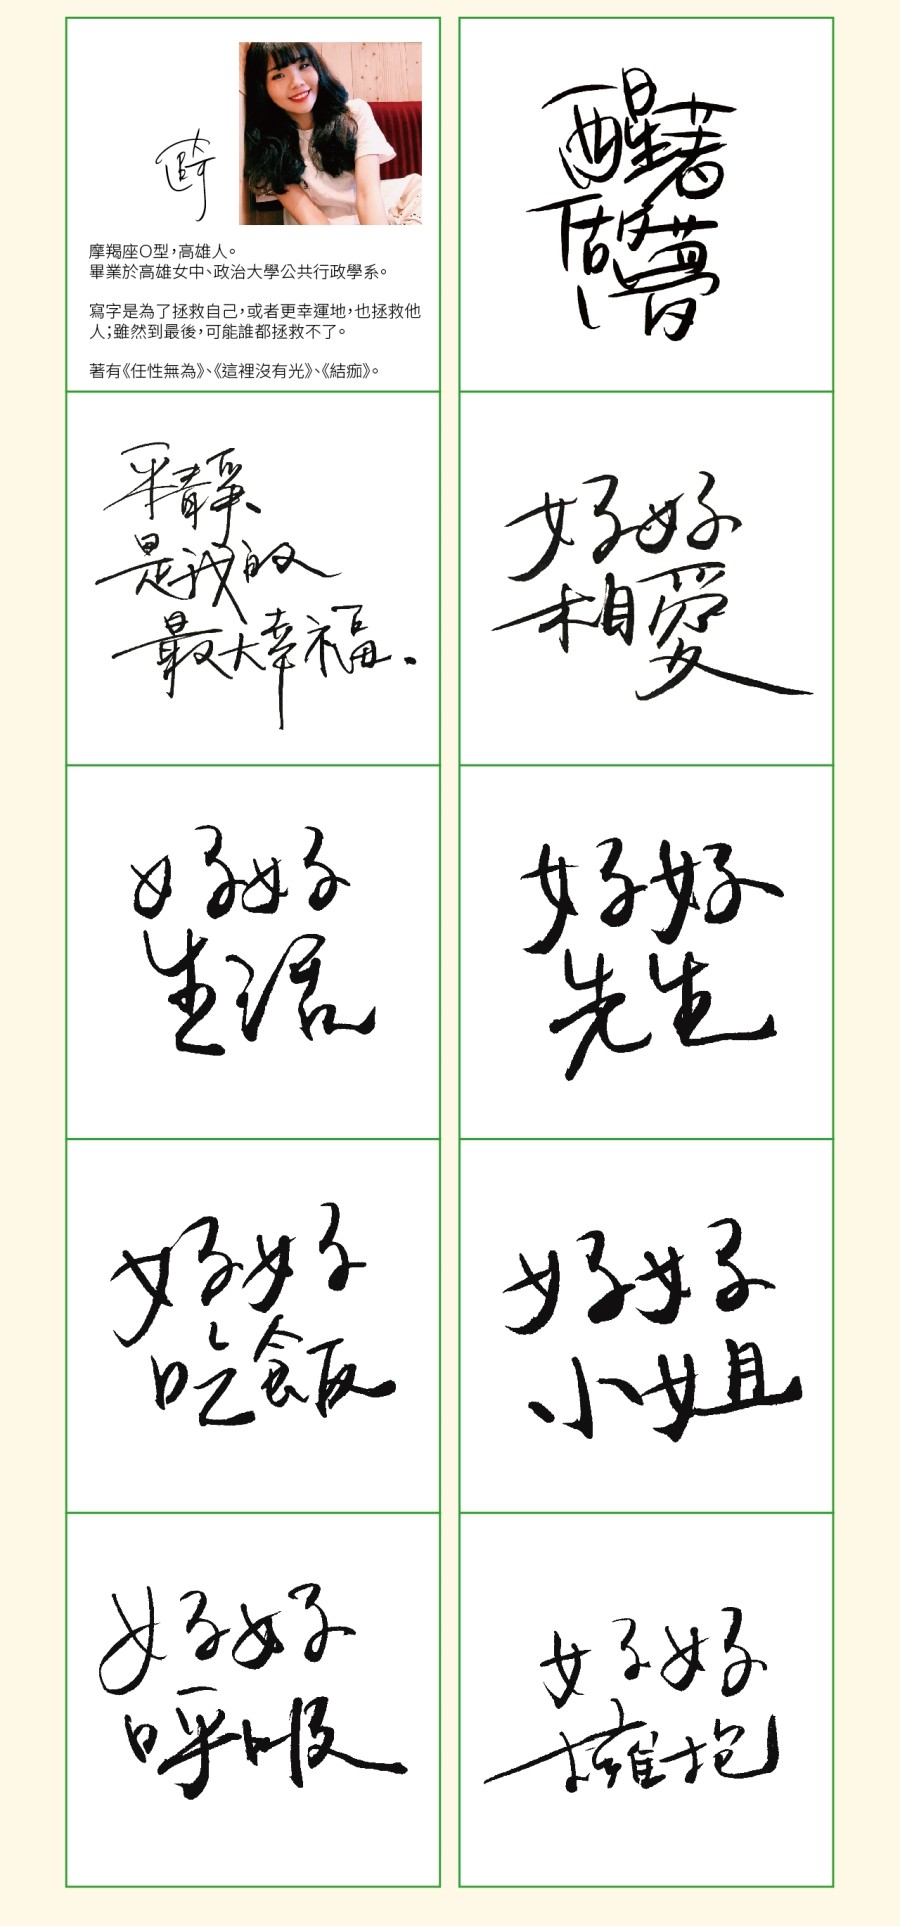 摩羯座O型，高雄人。
畢業於高雄女中、政治大學公共行政學系。
寫字是為了拯救自己，或者更幸運地，也拯救他
人；雖然到最後，可能誰都拯救不了。
著有《任性無為》、《這裡沒有光》、《結痂》。
醒著
做夢
平靜、
是我的
最大幸福.
好好
相愛
好好
生活
好好
先生
好好
吃飯
好好
小姐
好好
呼吸
好好
擁抱